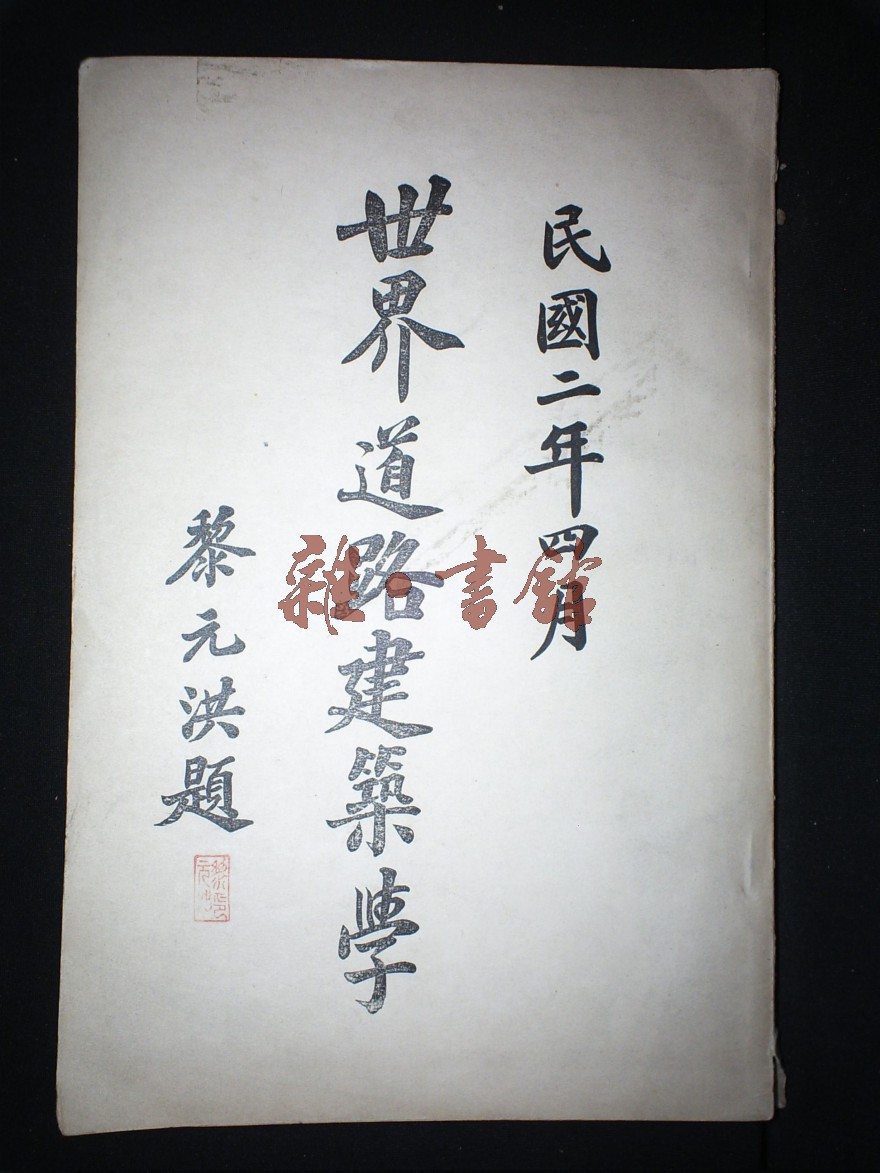 民國二年四月
世界道路建築學
黎元洪題
雜·書館